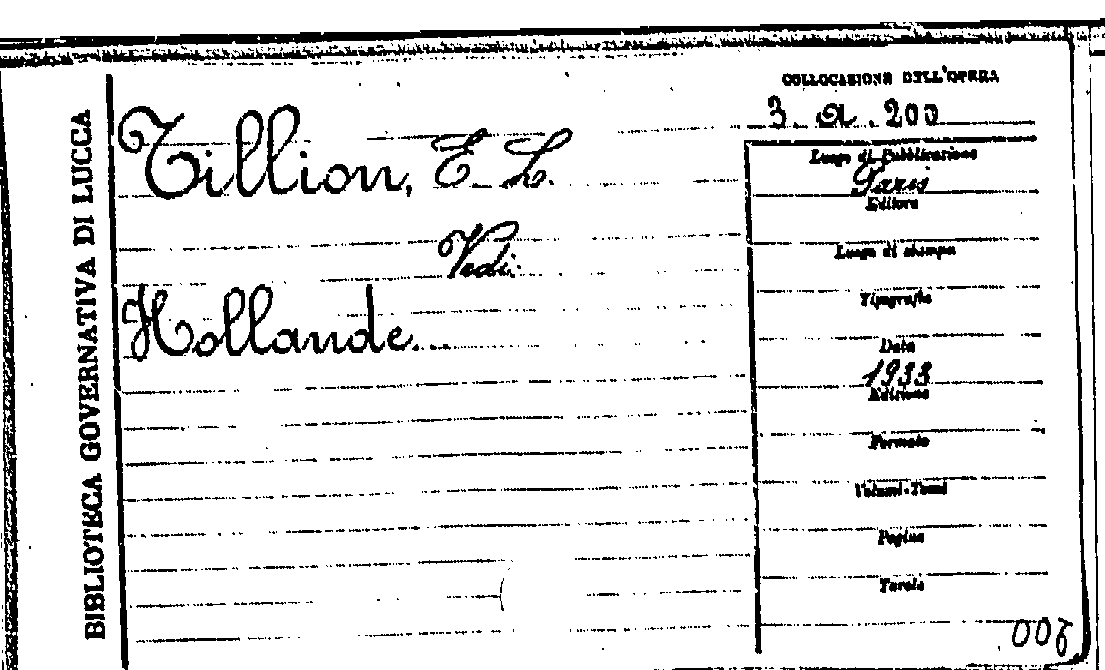 BIBLIOTECA GOVERNATIVA DI LUCCA
COLLOCAZIONE DELL'OPERA
3. a. 200
Tillion, E. L.
Vedi:
Hollande...
Luogo di Pubblicazione
Paris
Editore
Luogo di stampa
Tipografia
Data
1933
Edizione
Formato
Volumi-Tomi
Pagine
Tavole